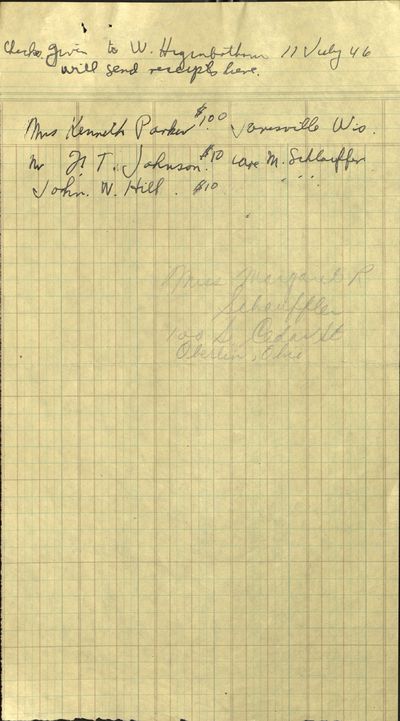 Checks given to W. Higinbotham 11 July 46
will send receipts here.
Mrs Kenneth Parker $100 Janesville Wis.
Mr H T. Johnson. $10 care M. Schlauffer
John. W. Hill. $10 " " "
Miss Margaret R
Schauffler
100 S. Cedar St
Oberlin, Ohio